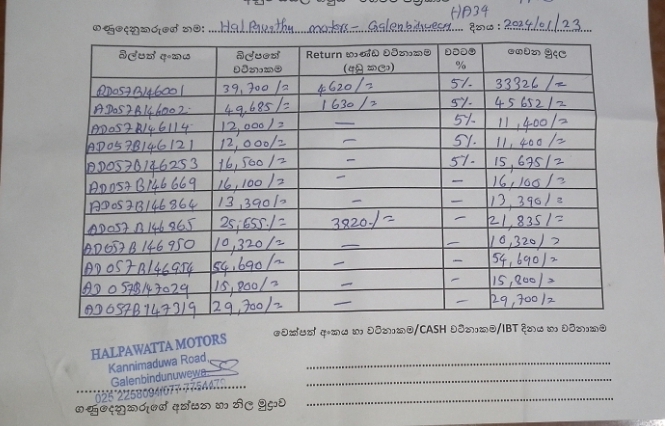 HA39
ගණුදෙනුකරුගේ නම: Halpawatha motors - Galenbinduwewa දිනය: 2024/01/23
බිල්පත් අංකය බිල්පතේ වටිනාකම Return භාණ්ඩ වටිනාකම (අඩු කලා) වට්ටම % ගෙවන මුදල
AD057B146001 39,700/= 4620/= 5% 33326/=
AD057B146002 49,685/= 1630/= 5% 45652/=
AD057B146114 12,000/= — 5% 11,400/=
AD057B146121 12,000/= — 5% 11,400/=
AD057B146253 16,500/= — 5% 15,675/=
AD057B146669 16,100/= — — 16,100/=
AD057B146864 13,390/= — — 13,390/=
AD057B146865 25,655/= 3820/= — 21,835/=
AD057B146950 10,320/= — — 10,320/=
AD057B146954 54,690/= — — 54,690/=
AD057B147029 15,800/= — — 15,800/=
AD057B147319 29,700/= — — 29,700/=
චෙක්පත් අංකය හා වටිනාකම/CASH වටිනාකම/IBT දිනය හා වටිනාකම
HALPAWATTA MOTORS
Kannimaduwa Road,
Galenbindunuwewa
025 2258094/077 7754470
ගණුදෙනුකරුගේ අත්සන හා නිල මුද්‍රාව